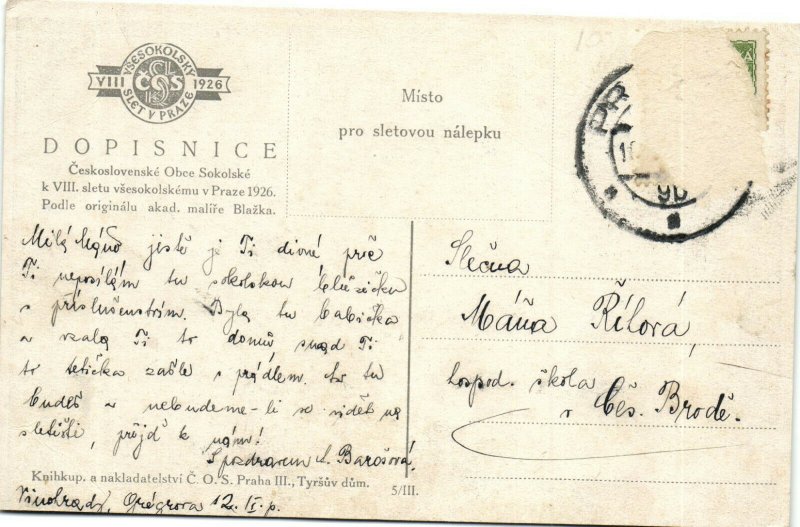 VŠESOKOLSKÝ
VIII ČOS 1926
SLET V PRAZE
DOPISNICE
Československé Obce Sokolské
k VIII. sletu všesokolskému v Praze 1926.
Podle originálu akad. malíře Blažka.
Místo
pro sletovou nálepku
PR
Milá Máňo jistě je Ti divné proč
Ti neposílám tu sokolskou blůzičku
s příslušenstvím. Byla tu babička
a vzala Ti to domů snad Ti
to tetička zašle s prádlem. tu
budeš a nebudeme-li se vidět na
sletišti, přijď k nám!
S pozdravem A. Barošová.
Slečna
Máňa Řílová,
hospod. škola
v Čes. Brodě.
Knihkup. a nakladatelství Č. O. S. Praha III., Tyršův dům.
5/III.
Vinohrady, Grégrova 12. II. p.